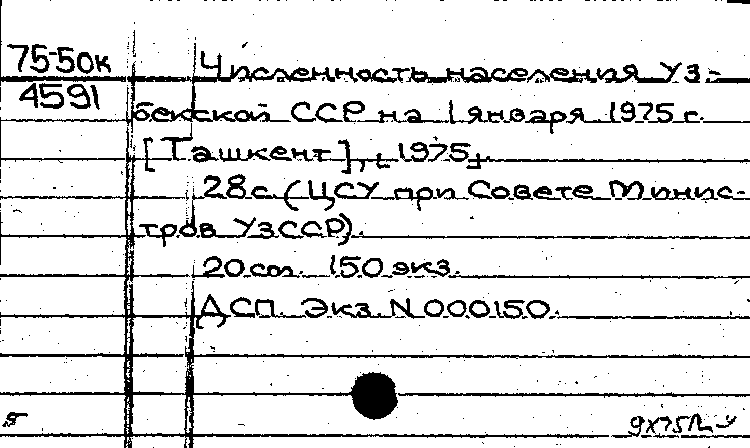 75-50к
4591
Численность населения Уз-
бекской ССР на 1 января 1975 г.
[Ташкент], [1975].
28с. (ЦСУ при Совете Минис-
тров УзССР).
20см. 150 экз.
ДСП. Экз. N 000150.